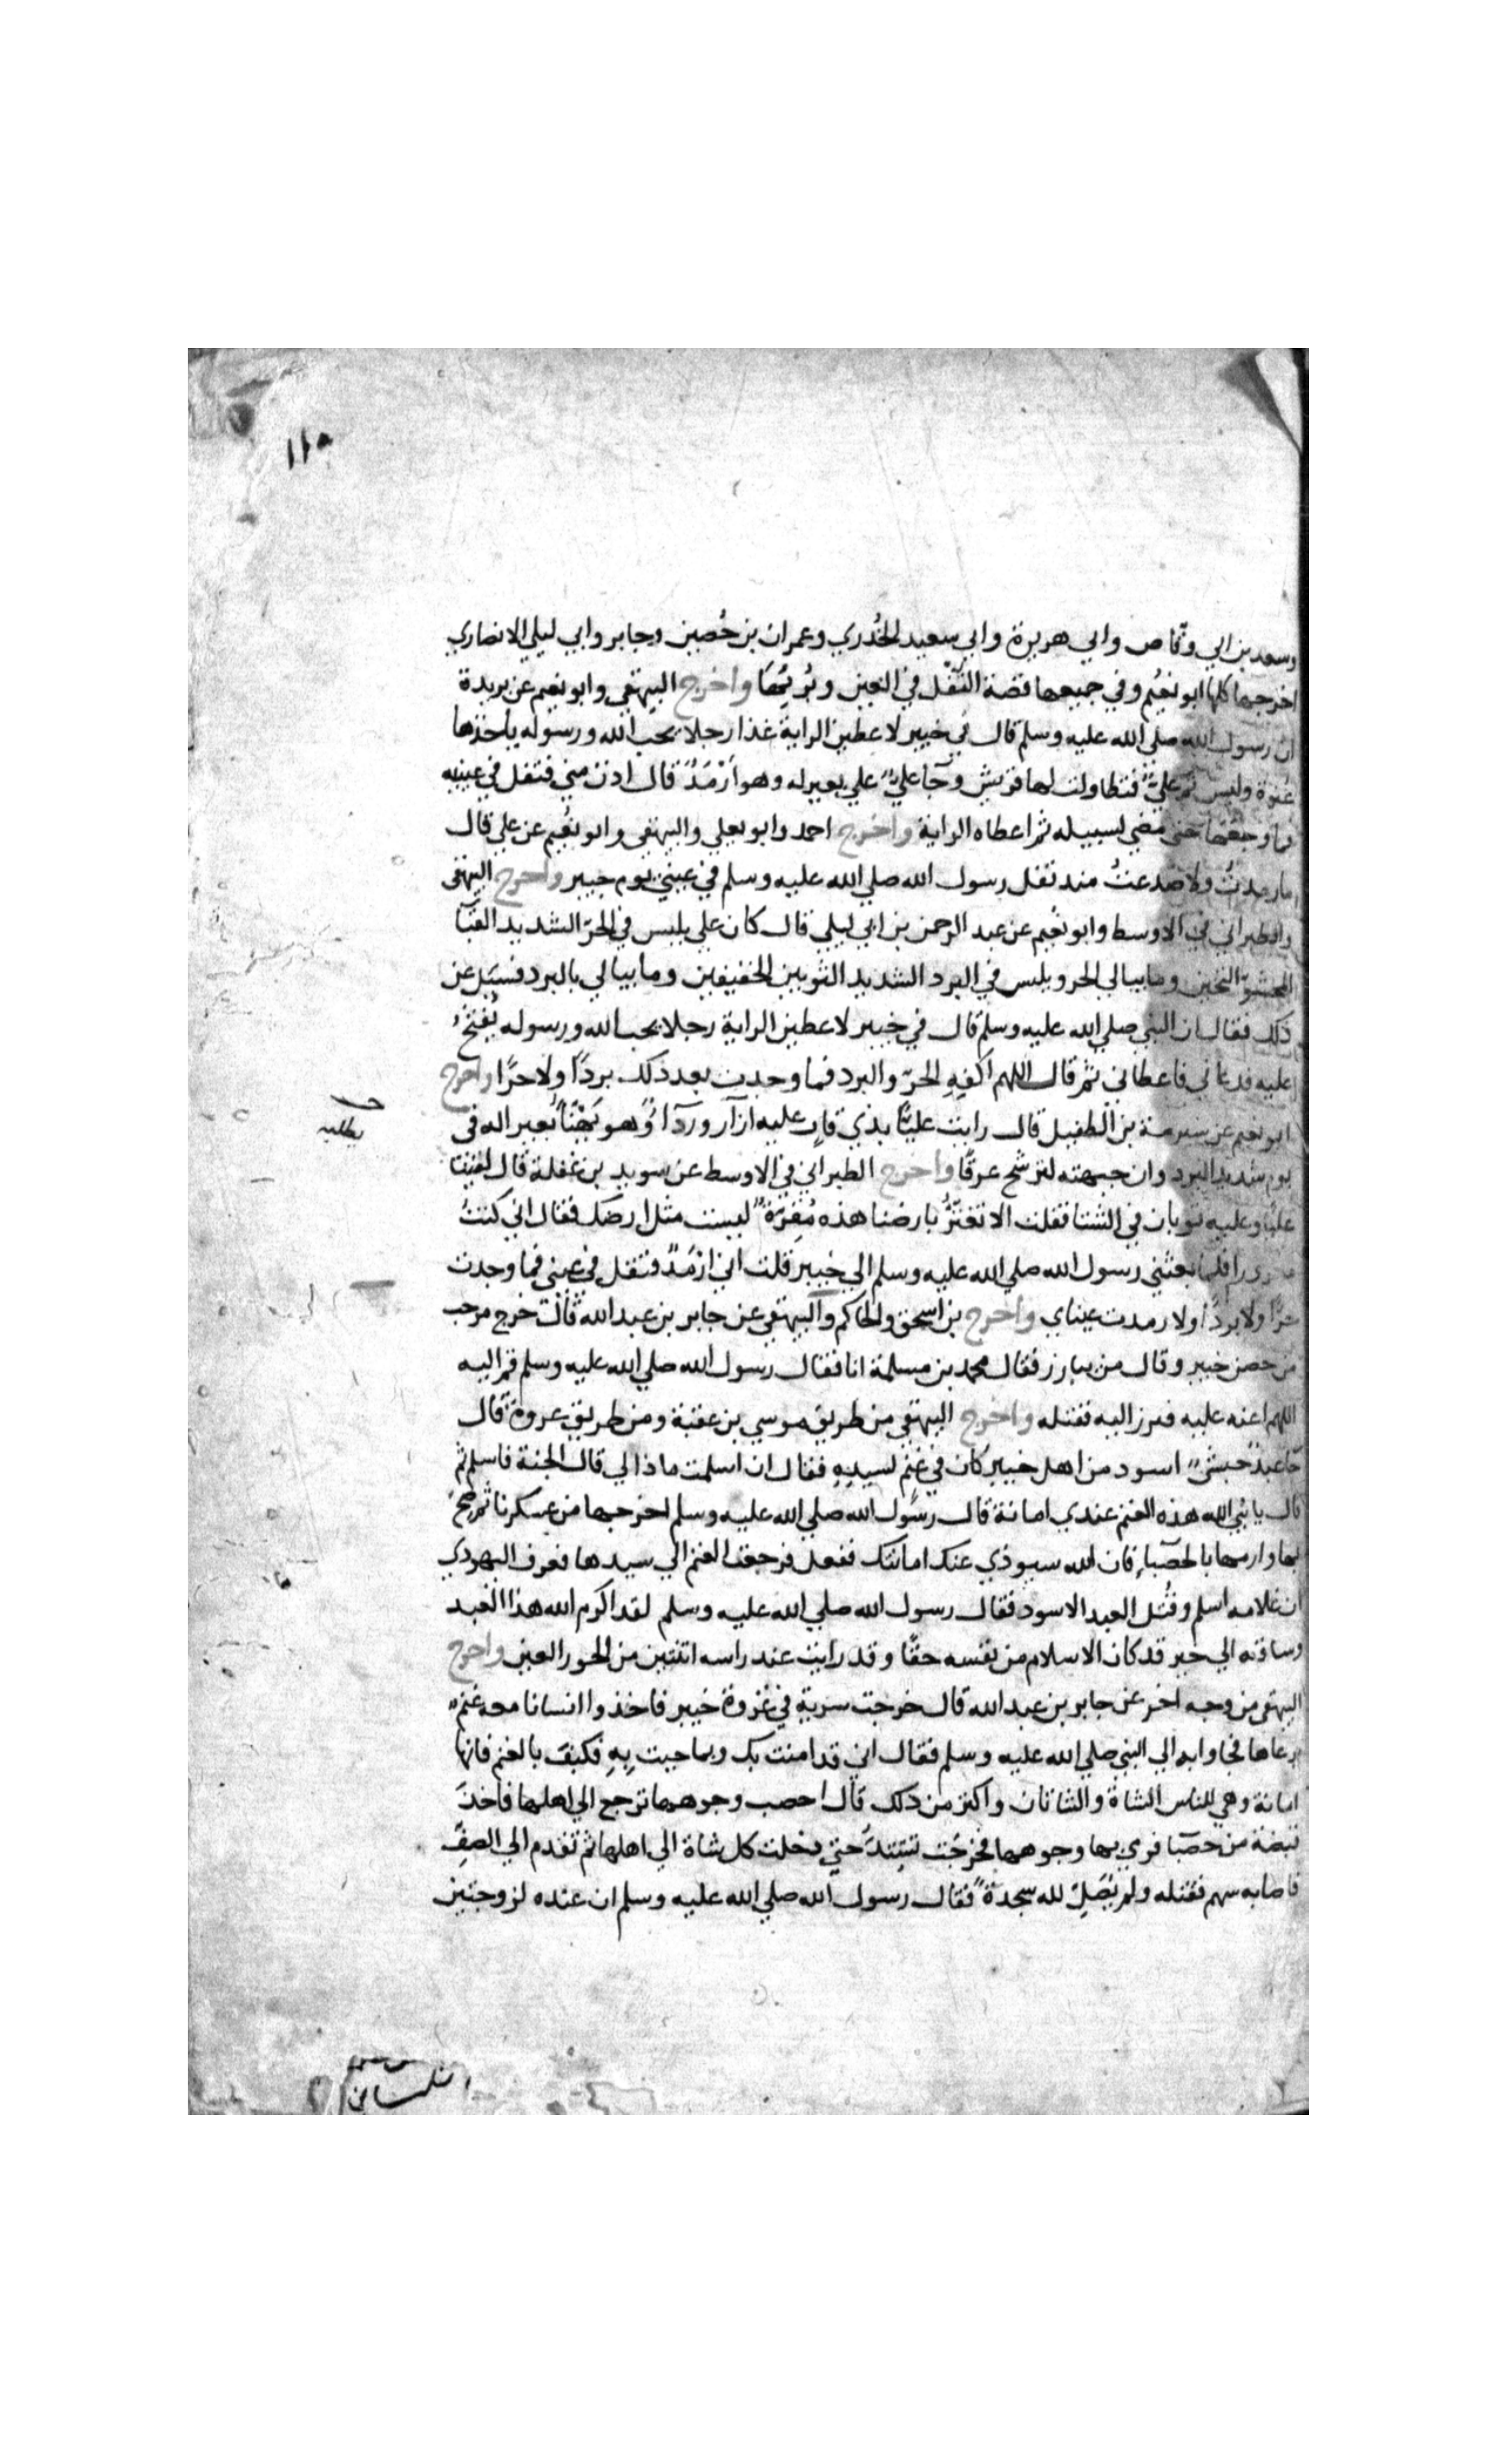 ١١٥
وسعد بن ابي وقاص وابي هريرة وابي سعيد الخُدري وعمران بن حُصين وجابر وابي ليلي الانصاري
اخرجها كلها ابو نعيم وفي جميعها قصة التَّفْل في العين وبُرئِهَا واخرج البيهقي وابو نعيم عن بريدة
ان رسول الله صلي الله عليه وسلم قال في خيبر لاعطين الراية غدا رجلا يحب الله ورسوله ياخذها
عنوة وليس ثم عليّ فتطاولت لها قريش وجآ عليٌّ علي بعير له وهو اَرْمَدُ قال ادن مني فتفل في عينيه
فما وجعها حتى مضي لسبيله ثم اعطاه الراية واخرج احمد وابو يعلي والبيهقي وابو نعُيم عن علي قال
ما رمدتُ ولا صُدعتُ منذ تفل رسول الله صلي الله عليه وسلم في عينيّ يوم خيبر واخرج البيهقي
والطبراني في الاوسط وابو نعُيم عن عبد الرحمن بن ابي ليلي قال كان علي يلبس في الحرّ الشديد القبَآ
المحشوّ الثخين وما يبالي الحر ويلبس في البرد الشديد الثوبين الخفيفين وما يبالي بالبرد فسئِل عن
ذلك فقال ان النبي صلي الله عليه وسلم قال في خيبر لاعطين الراية رجلا يحب الله ورسوله يُفتح
عليه فدعاني فاعطاني ثم قال اللهم اكفِهِ الحرّ والبرد فما وجدت بعد ذلك بردًا ولا حرًا واخرج
ابو نعيم عن شبرمة بن الطفيل قال رايت عليًّا بذي قار عليه ازار وردآ وهو يَهْنَأ بعيرا له في
يوم شديد البرد وان جبهته لترشح عرقًا واخرج الطبراني في الاوسط عن سويد بن غفلة قال لقينا
عليًا وعليه ثوبان في الشتا فقلت الا تغترُّ بارضنا هذه مُقِرّة ليست مثل ارضك فقال اني كنتُ
فلما بعثني رسول الله صلي الله عليه وسلم الي خيبر قلت اني ارْمَدُ فتفل في عيني فما وجدت
حرًّا ولا بردًا ولا رمدت عيناي واخرج بن اسحق والحاكم والبيهقي عن جابر بن عبد الله قال خرج مرحب
من حصن خيبر وقال من يبارز فقال محمد بن مسلمة انا فقال رسول الله صلي الله عليه وسلم قم اليه
اللهم اعنه عليه فبرز اليه فقتله واخرج البيهقي من طريق موسي بن عقبة ومن طريق عروة قال
جآ عبدٌ حبشيٌّ اسود من اهل خيبر كان في غنمٍ لسيدِهِ فقال ان اسلمت ماذا لي قال الجنة فاسلم ثم
قال يا نبي الله هذه الغنم عندي امانة قال رسول الله صلي الله عليه وسلم اخرجها من عسكرنا ثم صحْ
بها وارمها بالحصَبآءِ فان الله سيوذي عنك امانتك ففعل فرجعت الغنم الي سيدها فعرف اليهودي
ان غلامه اسلم وقُتل العبد الاسود فقال رسول الله صلي الله عليه وسلم لقد اكرم الله هذا العبد
وساقه الي خير قد كان الاسلام من نفسه حقًا وقد رايت عند راسه اثنتين من الحور العين واخرج
البيهقي من وجه اخر عن جابر بن عبد الله قال خرجت سرية في غزوة خيبر فاخذوا انسانا معه غنم
يرعاها فجاوا به الي النبي صلي الله عليه وسلم فقال اني قد امنت بك وبما جيت بِهِ فكيف بالغنم فانها
امانة وهي للناس الشاة والشاتان واكثر من ذلك قال احصب وجوهها ترجع الي اهلها فاخذ
قبضة من حصبآ فرمي بها وجوهها فخرجت تشتدّ حتي دخلت كل شاة الي اهلها ثم تقدم الي الصفّ
فاصابه سهم فقتله ولم يُصَلِّ لله سجدةً فقال رسول الله صلي الله عليه وسلم ان عنده لزوجتين